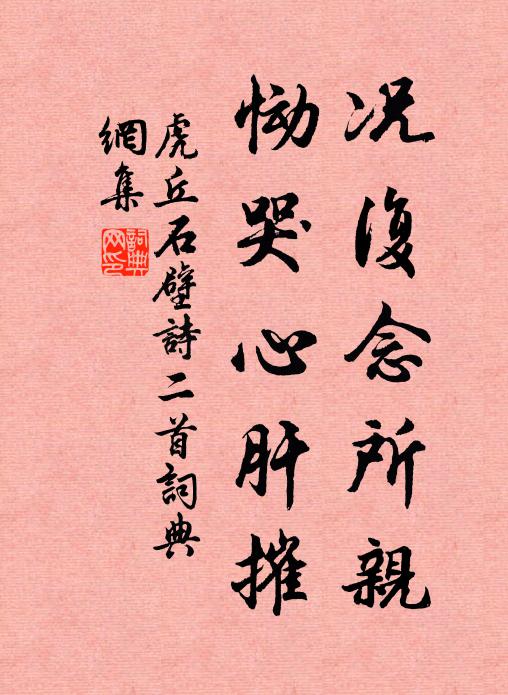 况復念所親
慟哭心肝摧
虎丘石壁詩二首詞典
網集
詞典
网印